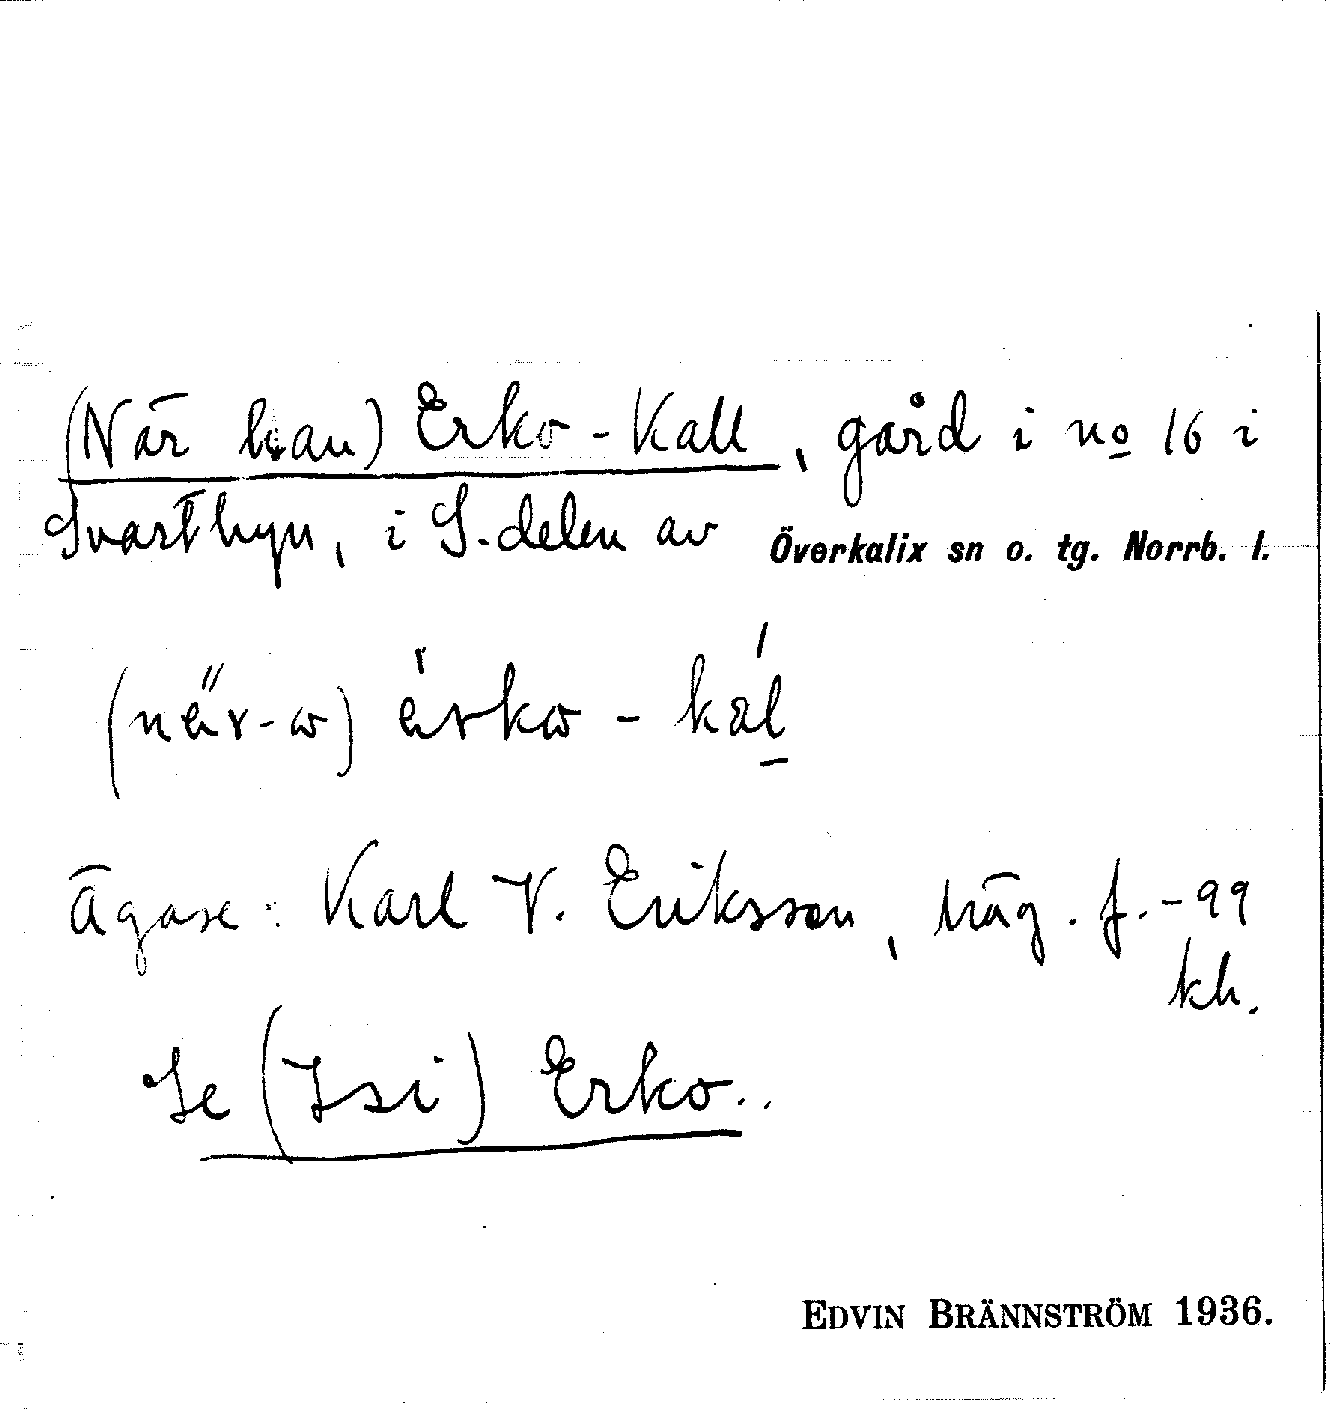 (När han) Erko-Kall, gård i no 16 i
Svartbyn, i S. delen av Överkalix sn o. tg. Norrb. l.
Ägare: Karl V. Eriksson, häg. f. -99
kh.
Se (Isi) Erko..
EDVIN BRÄNNSTRÖM 1936.